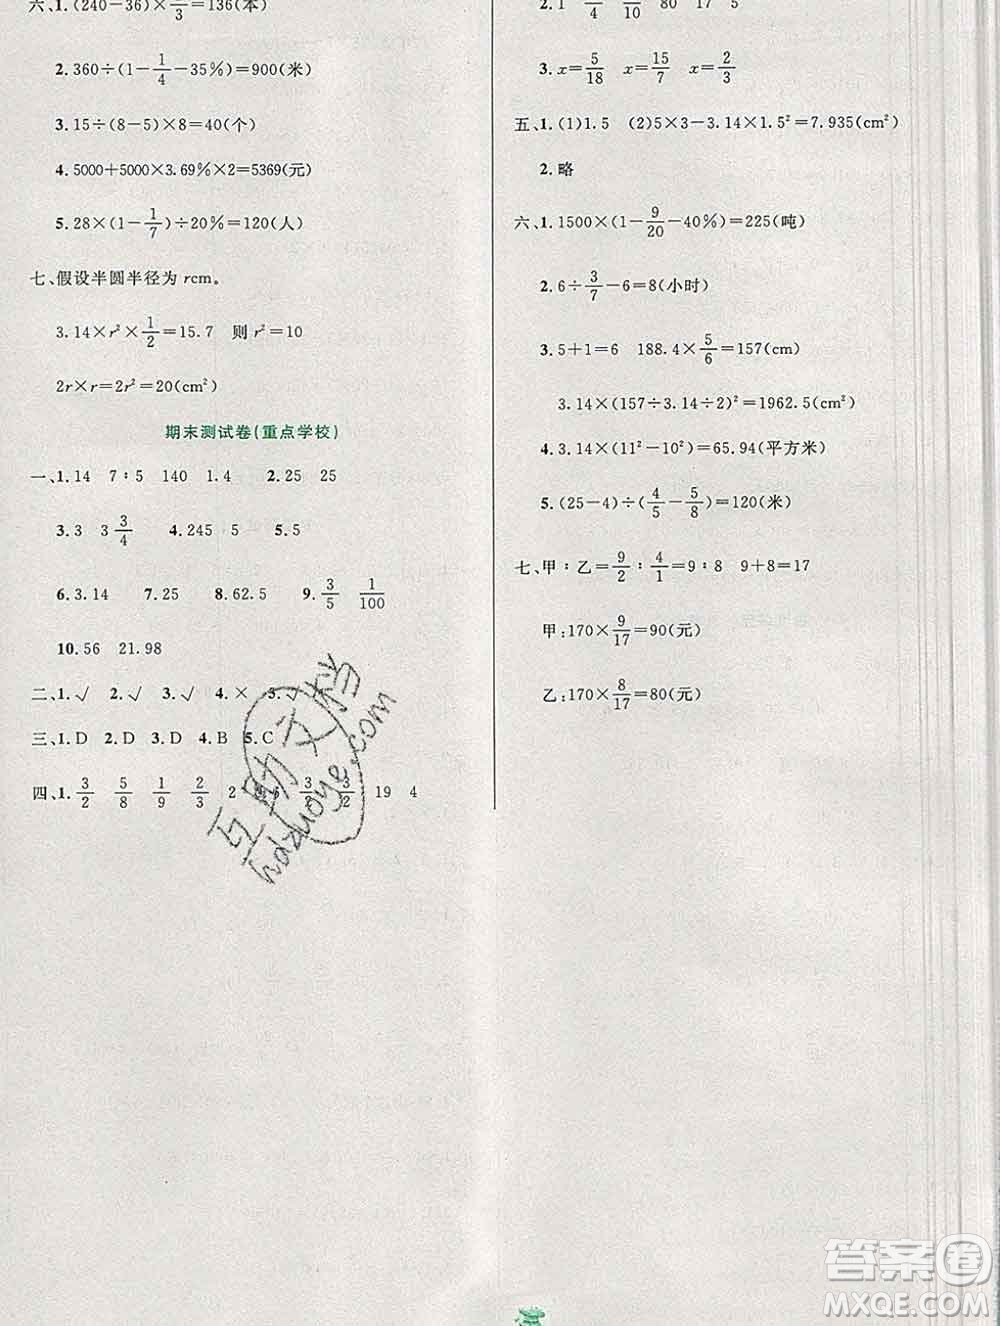 六、1.(240-36)×2/3=136(本)
2.360÷(1-1/4-35%)=900(米)
3.15÷(8-5)×8=40(个)
4.5000+5000×3.69%×2=5369(元)
5.28×(1-1/7)÷20%=120(人)
七、假设半圆半径为rcm。
3.14×r²×1/2=15.7 则r²=10
2r×r=2r²=20(cm²)
期末测试卷(重点学校)
一、1.14 7∶5 140 1.4 2.25 25
3.3 3 3/4 4.245 5 5.5
6.3.14 7.25 8.62.5 9.3/5 1/100
10.56 21.98
二、1.√ 2.√ 3.√ 4.× 5.√
三、1.D 2.D 3.D 4.B 5.C
四、1.3/2 5/8 1/9 2/3 2 19 4
80 17 5
3.x=5/18 x=15/7 x=2/3
五、1.(1)1.5 (2)5×3-3.14×1.5²=7.935(cm²)
2.略
六、1.1500×(1-9/20-40%)=225(吨)
2.6÷3/7-6=8(小时)
3.5+1=6 188.4×5/6=157(cm)
3.14×(157÷3.14÷2)²=1962.5(cm²)
4.3.14×(11²-10²)=65.94(平方米)
5.(25-4)÷(4/5-5/8)=120(米)
七、甲∶乙=9/2∶4/1=9∶8 9+8=17
甲:170×9/17=90(元)
乙:170×8/17=80(元)
互助文档
hdzhuoye.com
答案圈
MXQE.COM